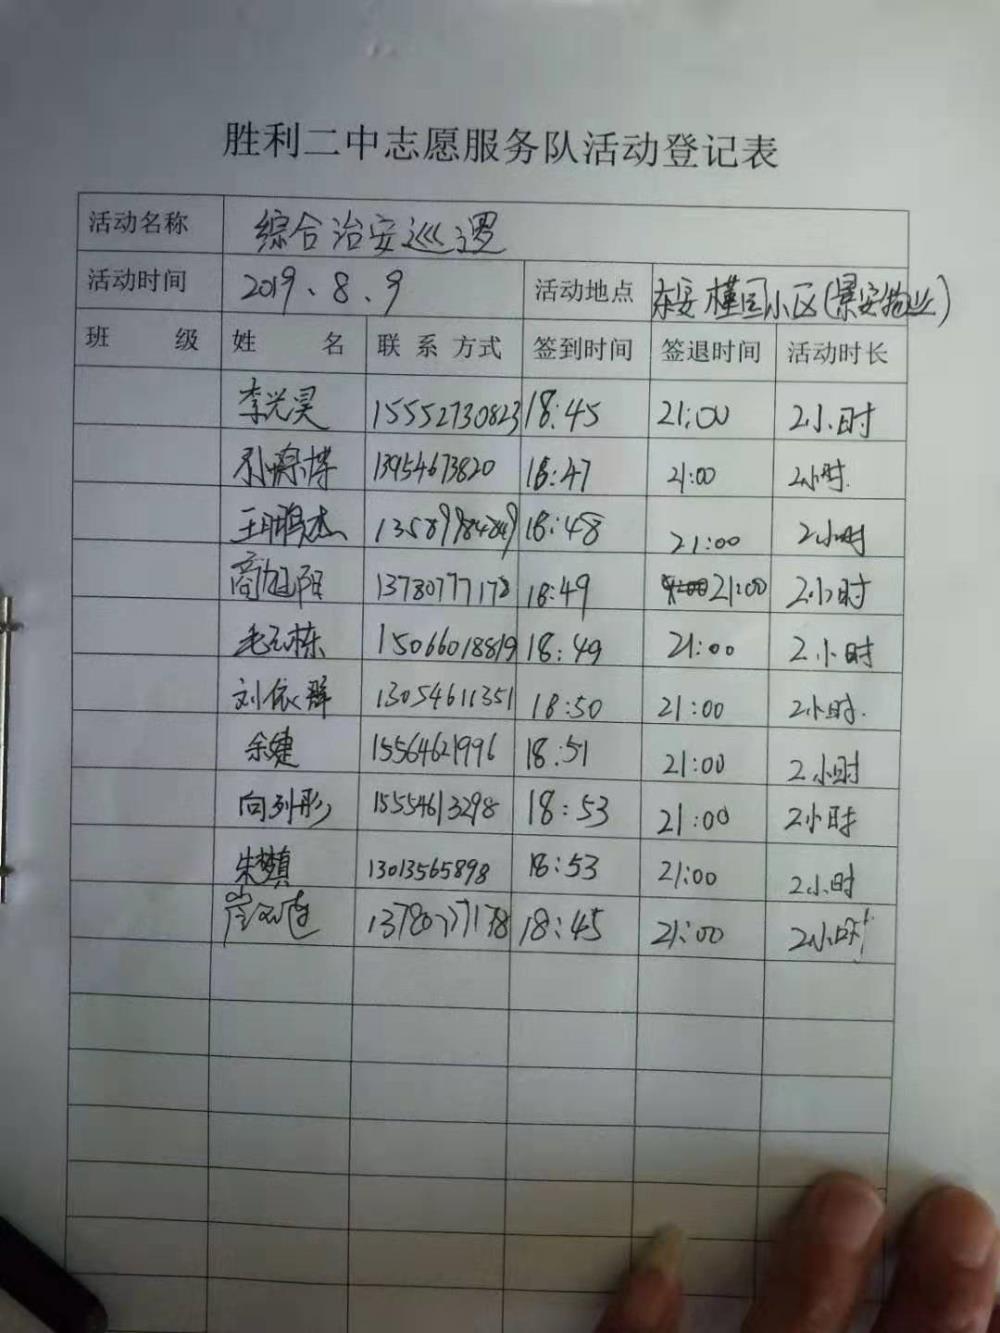 胜利二中志愿服务队活动登记表
活动名称 综合治安巡逻
活动时间 2019、8、9 活动地点 东安槿园小区(景安物业)
班 级 姓 名 联系方式 签到时间 签退时间 活动时长
李光昊 15552730823 18:45 21:00 2小时
13954673820 18:47 21:00 2小时.
王鹏杰 18:48 21:00 2小时
商旭阳 18:49 21:00 2小时
毛 栋 15066018819 18:49 21:00 2小时
刘依群 13054611351 18:50 21:00 2小时.
余婕 15564621996 18:51 21:00 2小时
向列彤 15554613298 18:53 21:00 2小时
朱 13013565898 18:53 21:00 2小时
崔 13780777178 18:45 21:00 2小时